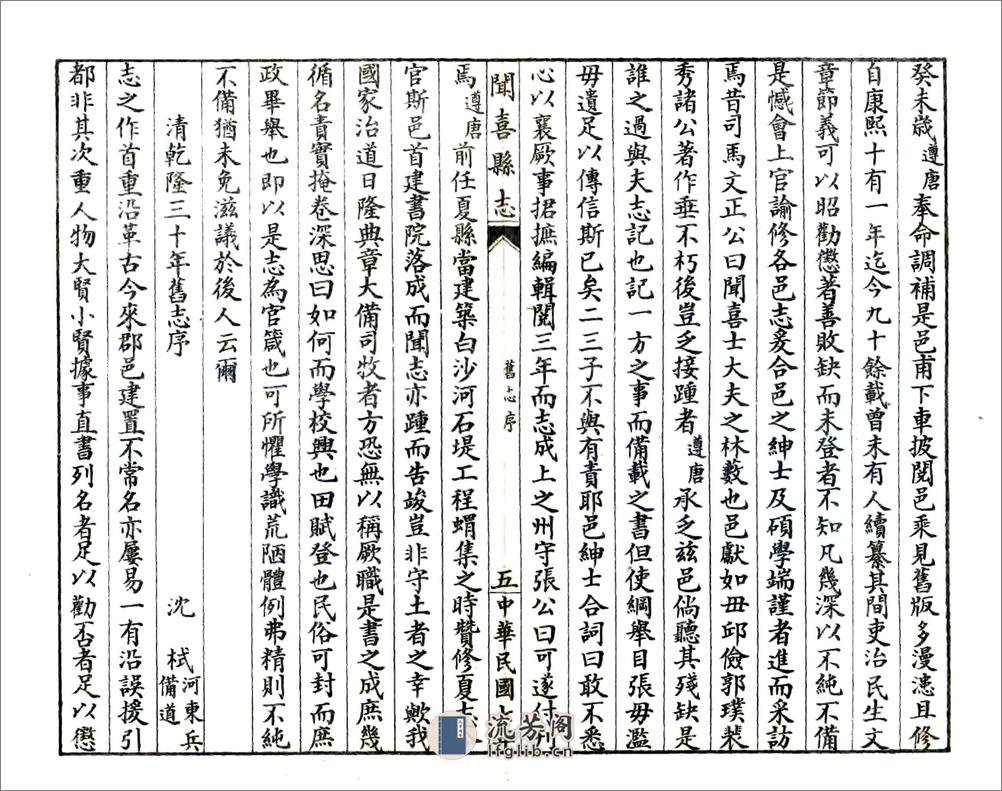 癸未歲遵唐奉命調補是邑甫下車披閱邑乘見舊版多漫漶且修
自康熙十有一年迄今九十餘載曾未有人續纂其間吏治民生文
章節義可以昭勸懲著善敗缺而未登者不知凡幾深以不純不備
是憾會上官諭修各邑志爰合邑之紳士及碩學端謹者進而采訪
焉昔司馬文正公曰聞喜士大夫之林藪也邑獻如毋邱儉郭璞裴
秀諸公著作垂不朽後豈乏接踵者遵唐承乏茲邑倘聽其殘缺是
誰之過與夫志記也記一方之事而備載之書但使綱舉目張毋濫
毋遺足以傳信斯已矣二三子不與有責耶邑紳士合詞曰敢不悉
心以襄厥事捃摭編輯閱三年而志成上之州守張公曰可遂付
聞喜縣志
舊志序
五
中華民國
焉遵唐前任夏縣當建築白沙河石堤工程蝟集之時贊修夏志
官斯邑首建書院落成而聞志亦踵而告竣豈非守土者之幸歟我
國家治道日隆典章大備司牧者方恐無以稱厥職是書之成庶幾
循名責實掩卷深思曰如何而學校興也田賦登也民俗可封而庶
政畢舉也即以是志為官箴也可所懼學識荒陋體例弗精則不純
不備猶未免滋議於後人云爾
清乾隆三十年舊志序
沈栻河東兵備道
志之作首重沿革古今來郡邑建置不常名亦屢易一有沿誤援引
都非其次重人物大賢小賢據事直書列名者足以勸否者足以懲
流芳阁
lfglib.cn